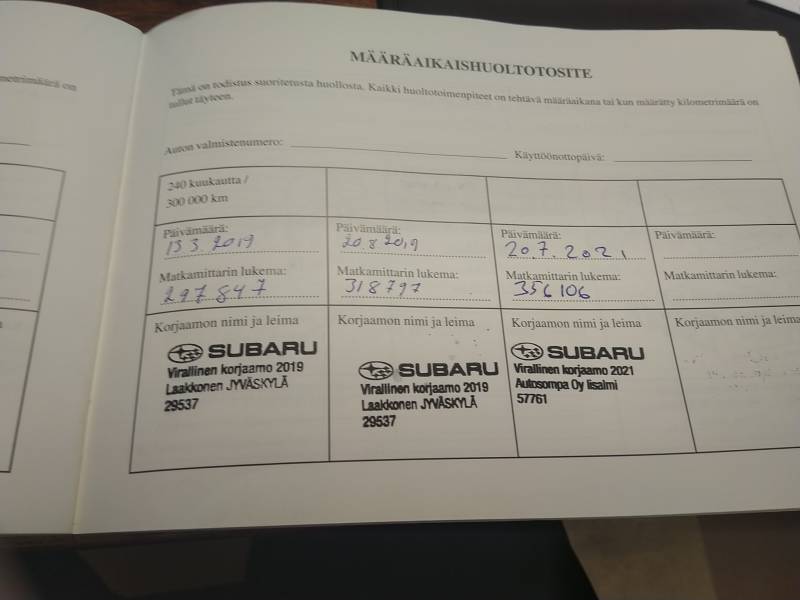 metrimäärä on
MÄÄRÄAIKAISHUOLTOTOSITE
Tämä on todistus suoritetusta huollosta. Kaikki huoltotoimenpiteet on tehtävä määräaikana tai kun määrätty kilometrimäärä on
tullut täyteen.
Auton valmistenumero:
Käyttöönottopäivä:
240 kuukautta /
300 000 km
Päivämäärä:
13 3. 2019
Matkamittarin lukema:
297 847
Korjaamon nimi ja leima
SUBARU
Virallinen korjaamo 2019
Laakkonen JYVÄSKYLÄ
29537
Päivämäärä:
20.8 2019
Matkamittarin lukema:
318797
Korjaamon nimi ja leima
SUBARU
Virallinen korjaamo 2019
Laakkonen JYVÄSKYLÄ
29537
Päivämäärä:
20.7.2021
Matkamittarin lukema:
356106
Korjaamon nimi ja leima
SUBARU
Virallinen korjaamo 2021
Autosompa Oy Iisalmi
57761
Päivämäärä:
Matkamittarin lukema:
Korjaamon nimi ja leima